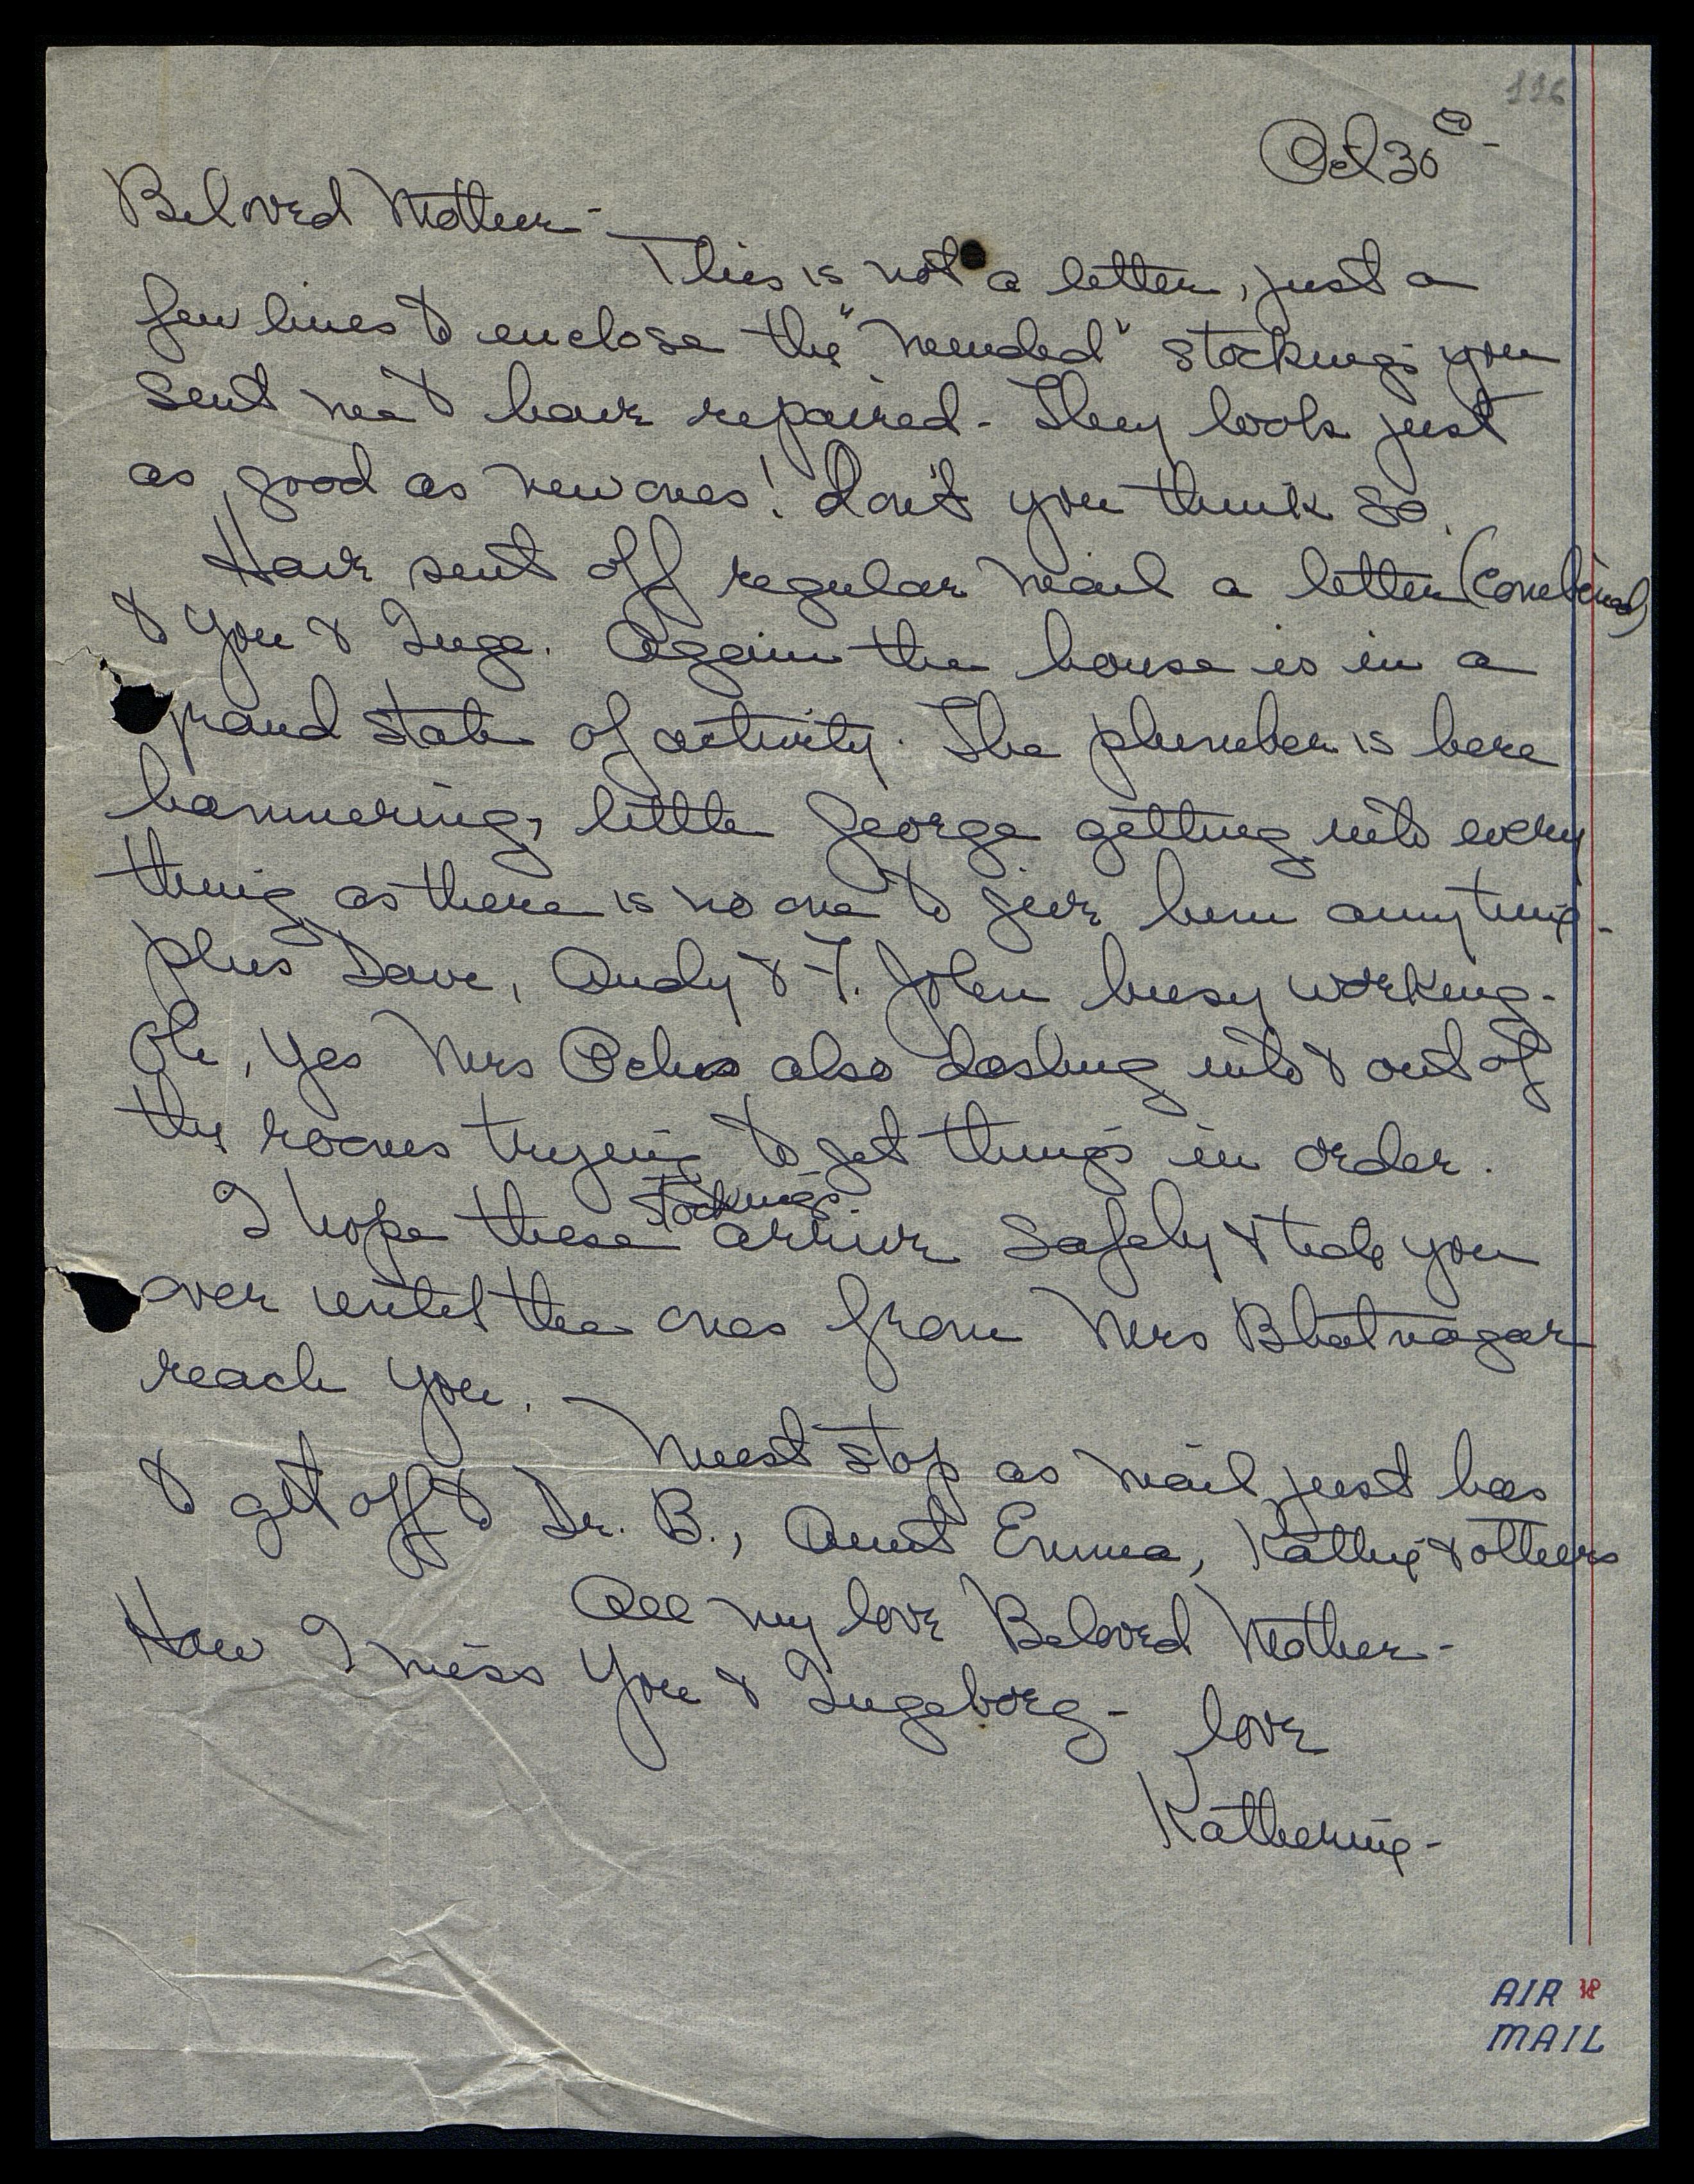 116
Oct 30th -
Beloved Mother -
This is not a letter, just a
few lines to enclose the "mended" stockings you
sent me to have repaired - They look just
as good as new ones! don't you think so.
Have sent off regular mail a letter (combined)
to you & Inge. Again the house is in a
grand state of activity. The plumber is here
hammering, little George getting into every
thing as there is no one to give him anything -
plus Dave, Andy & F. John busy working -
Oh, yes Mrs Ochs also dashing into & out of
the rooms trying to get things in order.
I hope these stockings arrive safely & tide you
over until the ones from Mrs Bhatnagar
reach you. -
Must stop as mail just has
to get off to Dr. B., Aunt Emma, Kathy & others
All my love Beloved Mother -
How I miss you & Ingeborg - love
Katherine -
AIR
MAIL